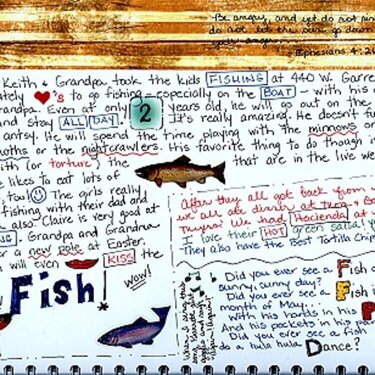 Be angry, and yet do not sin
do not let the sun go down
your anger...
Ephesians 4:26
Keith & Grandpa took the kids FISHING at 440 W. Garre
ately ♥'s to go fishing - especially on the BOAT - with his
randpa. Even at only 2 years old, he will go out on the
and stay ALL DAY. It's really amazing. He doesn't
antsy. He will spend the time playing with the minnows or
moths or the nightcrawlers. His favorite thing to do though
with (or torture) the
that are in the live we
he likes to eat lots of
too! The girls really
fishing with their dad and
a also. Claire is very good at
Grandpa and Grandma
a new pole at Easter.
will even KISS the
wow!
Fish!
After they all got back from
we all ate dinner at
We had Hacienda at
I love their HOT green salsa!
They also have the Best Tortilla Chips
Did you ever see a F
sunny, sunny day?
Did you ever see a F
morning of May...
With his hands in his P
And his pockets in his pan
Did you ever see a Fish
do a hula hula Dance?